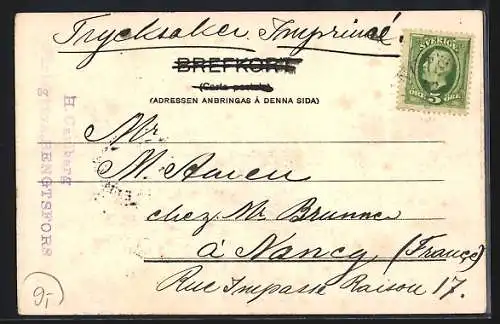 Trycksaker. Imprimé
BREFKORT
(Carte postale)
(ADRESSEN ANBRINGAS Å DENNA SIDA)
SVERIGE
5
ÖRE ÖRE
Mr
M.
chez Mr Brunner
à Nancy (France)
Rue Impasse Raison 17.
BENGTSFORS
9,-